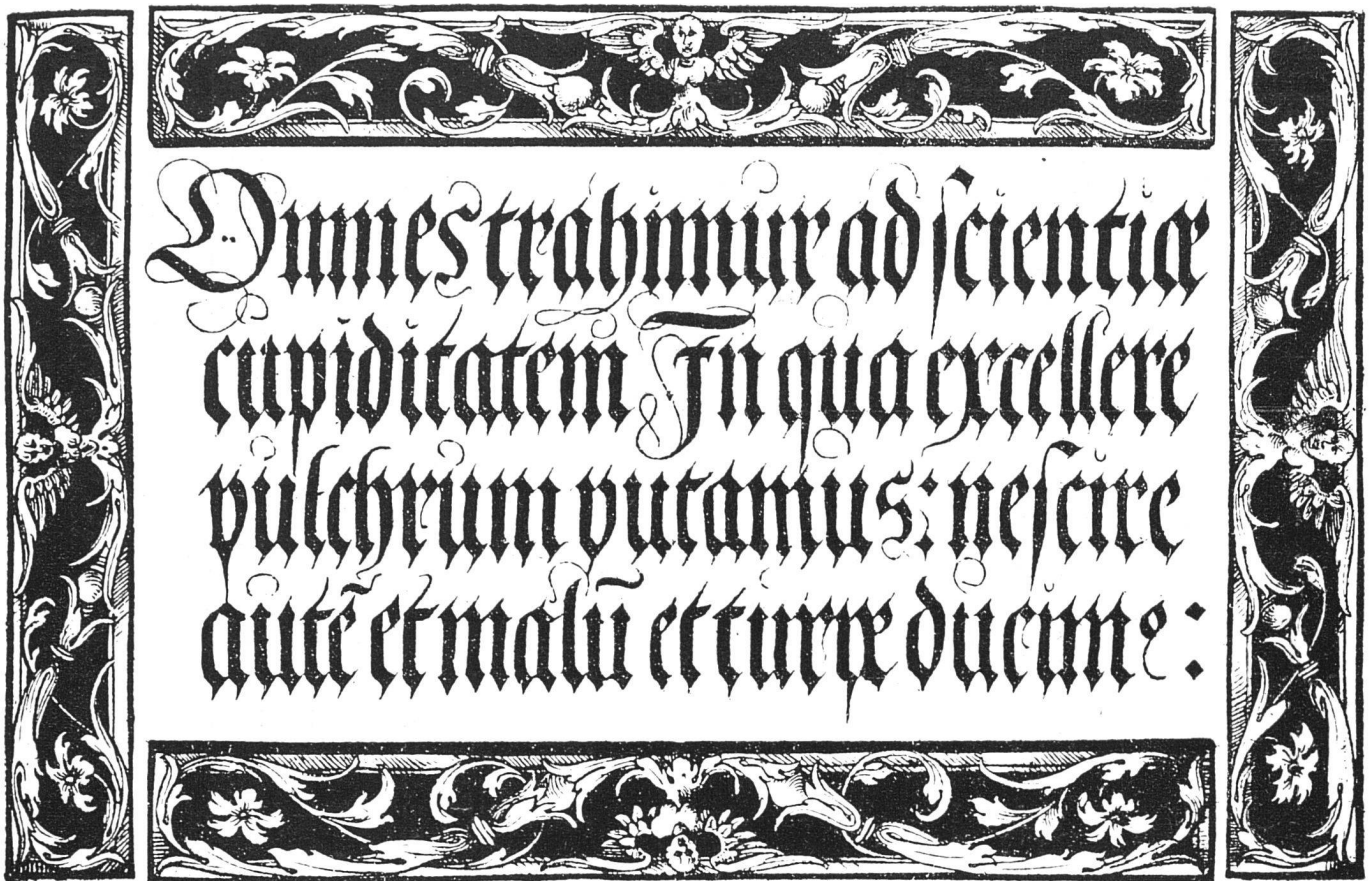 Omnes trahimur ad ſcientiæ
cupiditatem In qua excellere
pulchrum putamus: neſcire
autē et malū et turpe ducimꝰ: